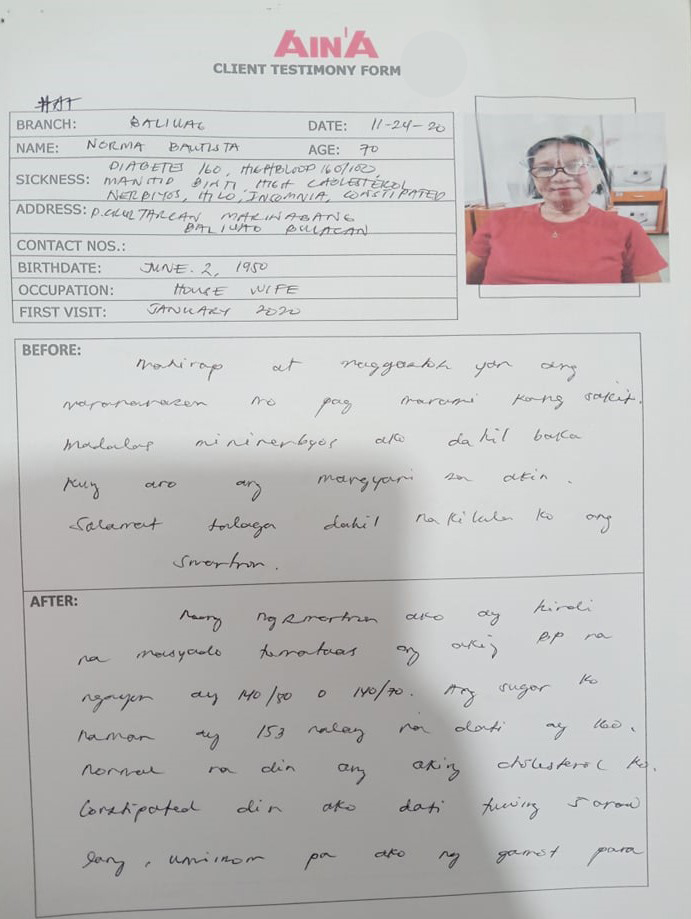 AIN'A
CLIENT TESTIMONY FORM
#AT
BRANCH: BALIUAG DATE: 11-24-20
NAME: NORMA BAUTISTA AGE: 70
SICKNESS: DIABETES 160, HIGHBLOOD 160/100,
MANHID BINTI, HIGH CHOLESTEROL,
NERBIYOS, HILO, INCOMNIA, CONSTIPATED
ADDRESS: TARCAN MAKINABANG
BALIUAG BULACAN
CONTACT NOS.:
BIRTHDATE: JUNE. 2, 1950
OCCUPATION: HOUSE WIFE
FIRST VISIT: JANUARY 2020
BEFORE:
Mahirap at maggastos yan ang
mararanasan mo pag marami kang sakit.
Madalas nininerbyos ako dahil baka
kung ano ang mangyari sa akin.
Salamat talaga dahil nakilala ko ang
Smartron.
AFTER:
Nang ng Smartron ako ay hindi
na masyado tumataas ang aking BP na
ngayon ay 140/80 o 140/70. Ang sugar ko
naman ay 153 nalang na dati ay 160.
Normal na din ang aking cholesterol ko.
Constipated din ako dati tuwing 5 araw
lang, umiinom pa ako ng gamot para